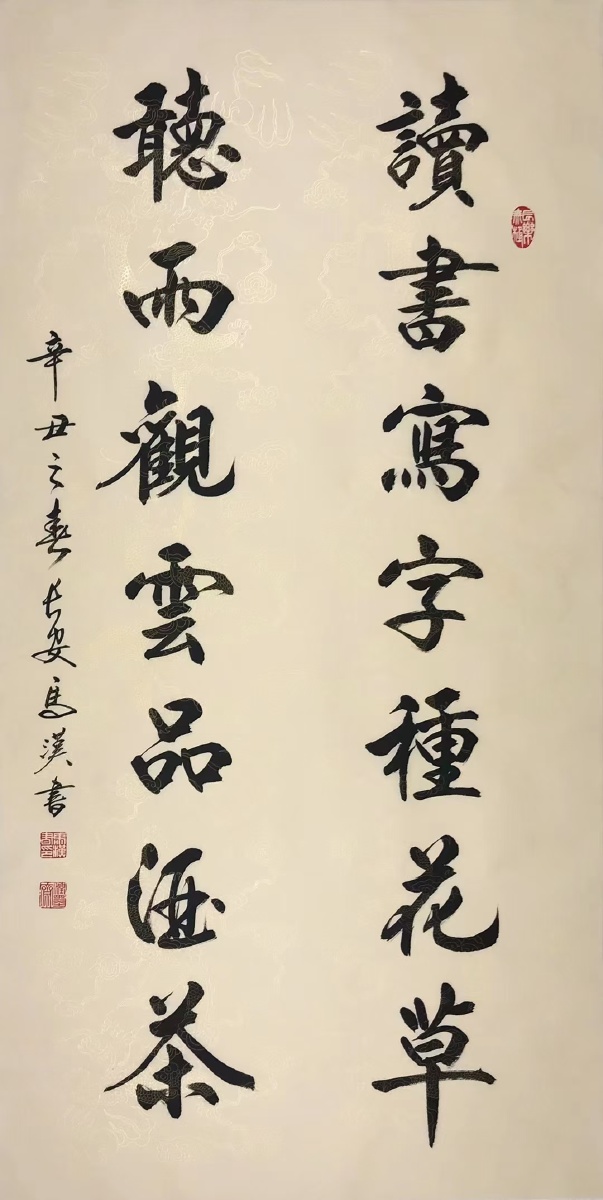 讀書寫字種花草
聽雨觀雲品酒茶
辛丑之春長安馬漢書